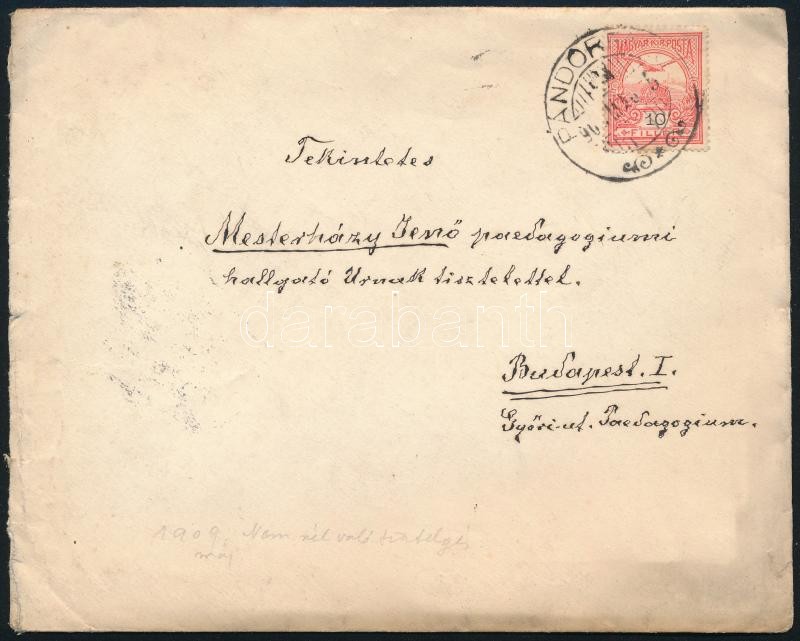 PÁNDOR
MAGYAR KIR. POSTA
10
FILLÉR
Tekintetes
Mesterházy Jenő paedagogiumi
hallgató Urnak tisztelettel.
darabanth
Budapest. I.
Győri-ut. Paedagogium.
1909. Nem
máj